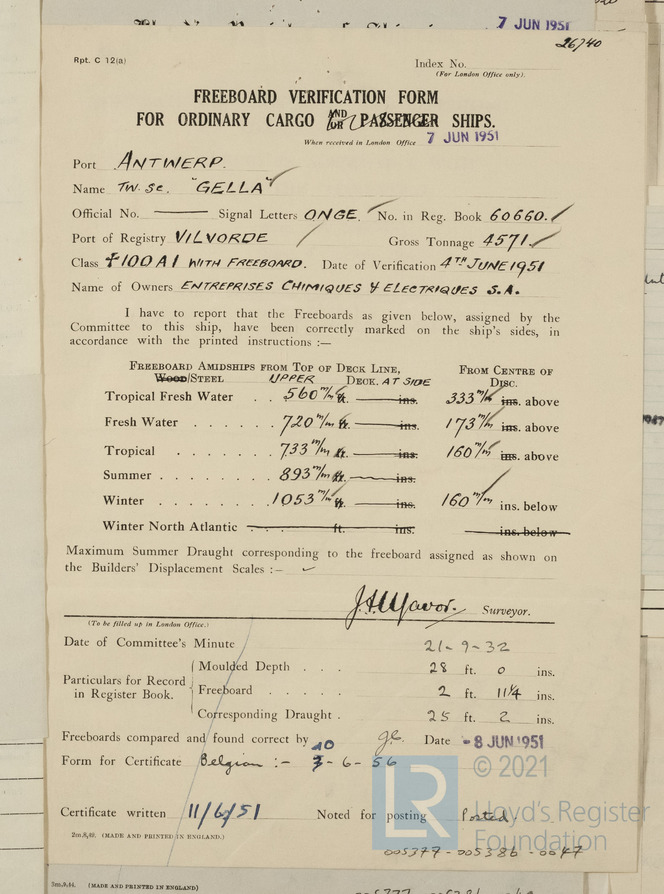 7 JUN 1951
26740
Rpt. C 12(a)
Index No.
(For London Office only).
FREEBOARD VERIFICATION FORM
FOR ORDINARY CARGO AND/OR PASSENGER SHIPS.
When received in London Office 7 JUN 1951
Port ANTWERP.
Name TW. Sc. "GELLA"
Official No. —— Signal Letters ONGE. No. in Reg. Book 60660.
Port of Registry VILVORDE Gross Tonnage 4571.
Class +100A1 WITH FREEBOARD. Date of Verification 4TH JUNE 1951
Name of Owners ENTREPRISES CHIMIQUES & ELECTRIQUES S.A.
I have to report that the Freeboards as given below, assigned by the
Committee to this ship, have been correctly marked on the ship's sides, in
accordance with the printed instructions :—
FREEBOARD AMIDSHIPS FROM TOP OF DECK LINE, FROM CENTRE OF
WOOD/STEEL UPPER DECK. AT SIDE DISC.
Tropical Fresh Water . . 560 m/m ft. —— ins. 333 m/m ins. above
Fresh Water . . . . . . 720 m/m ft. —— ins. 173 m/m ins. above
Tropical . . . . . . . 733 m/m ft. —— ins. 160 m/m ins. above
Summer . . . . . . . . 893 m/m ft. —— ins.
Winter . . . . . . . . 1053 m/m ft. —— ins. 160 m/m ins. below
Winter North Atlantic —— ft. ins. ins. below
Maximum Summer Draught corresponding to the freeboard assigned as shown on
the Builders' Displacement Scales :—
Surveyor.
(To be filled up in London Office.)
Date of Committee's Minute 21-9-32
Particulars for Record in Register Book.
Moulded Depth . . . 28 ft. 0 ins.
Freeboard . . . . . 2 ft. 11¼ ins.
Corresponding Draught . 25 ft. 2 ins.
Freeboards compared and found correct by Date - 8 JUN 1951
Form for Certificate Belgian :- -6-56
Certificate written 11/6/51 Noted for posting Posted.
2m,8,49. (MADE AND PRINTED IN ENGLAND.)
LR
© 2021
Lloyd's Register
Foundation
005377-005386-0047
3m.9.44. (MADE AND PRINTED IN ENGLAND)